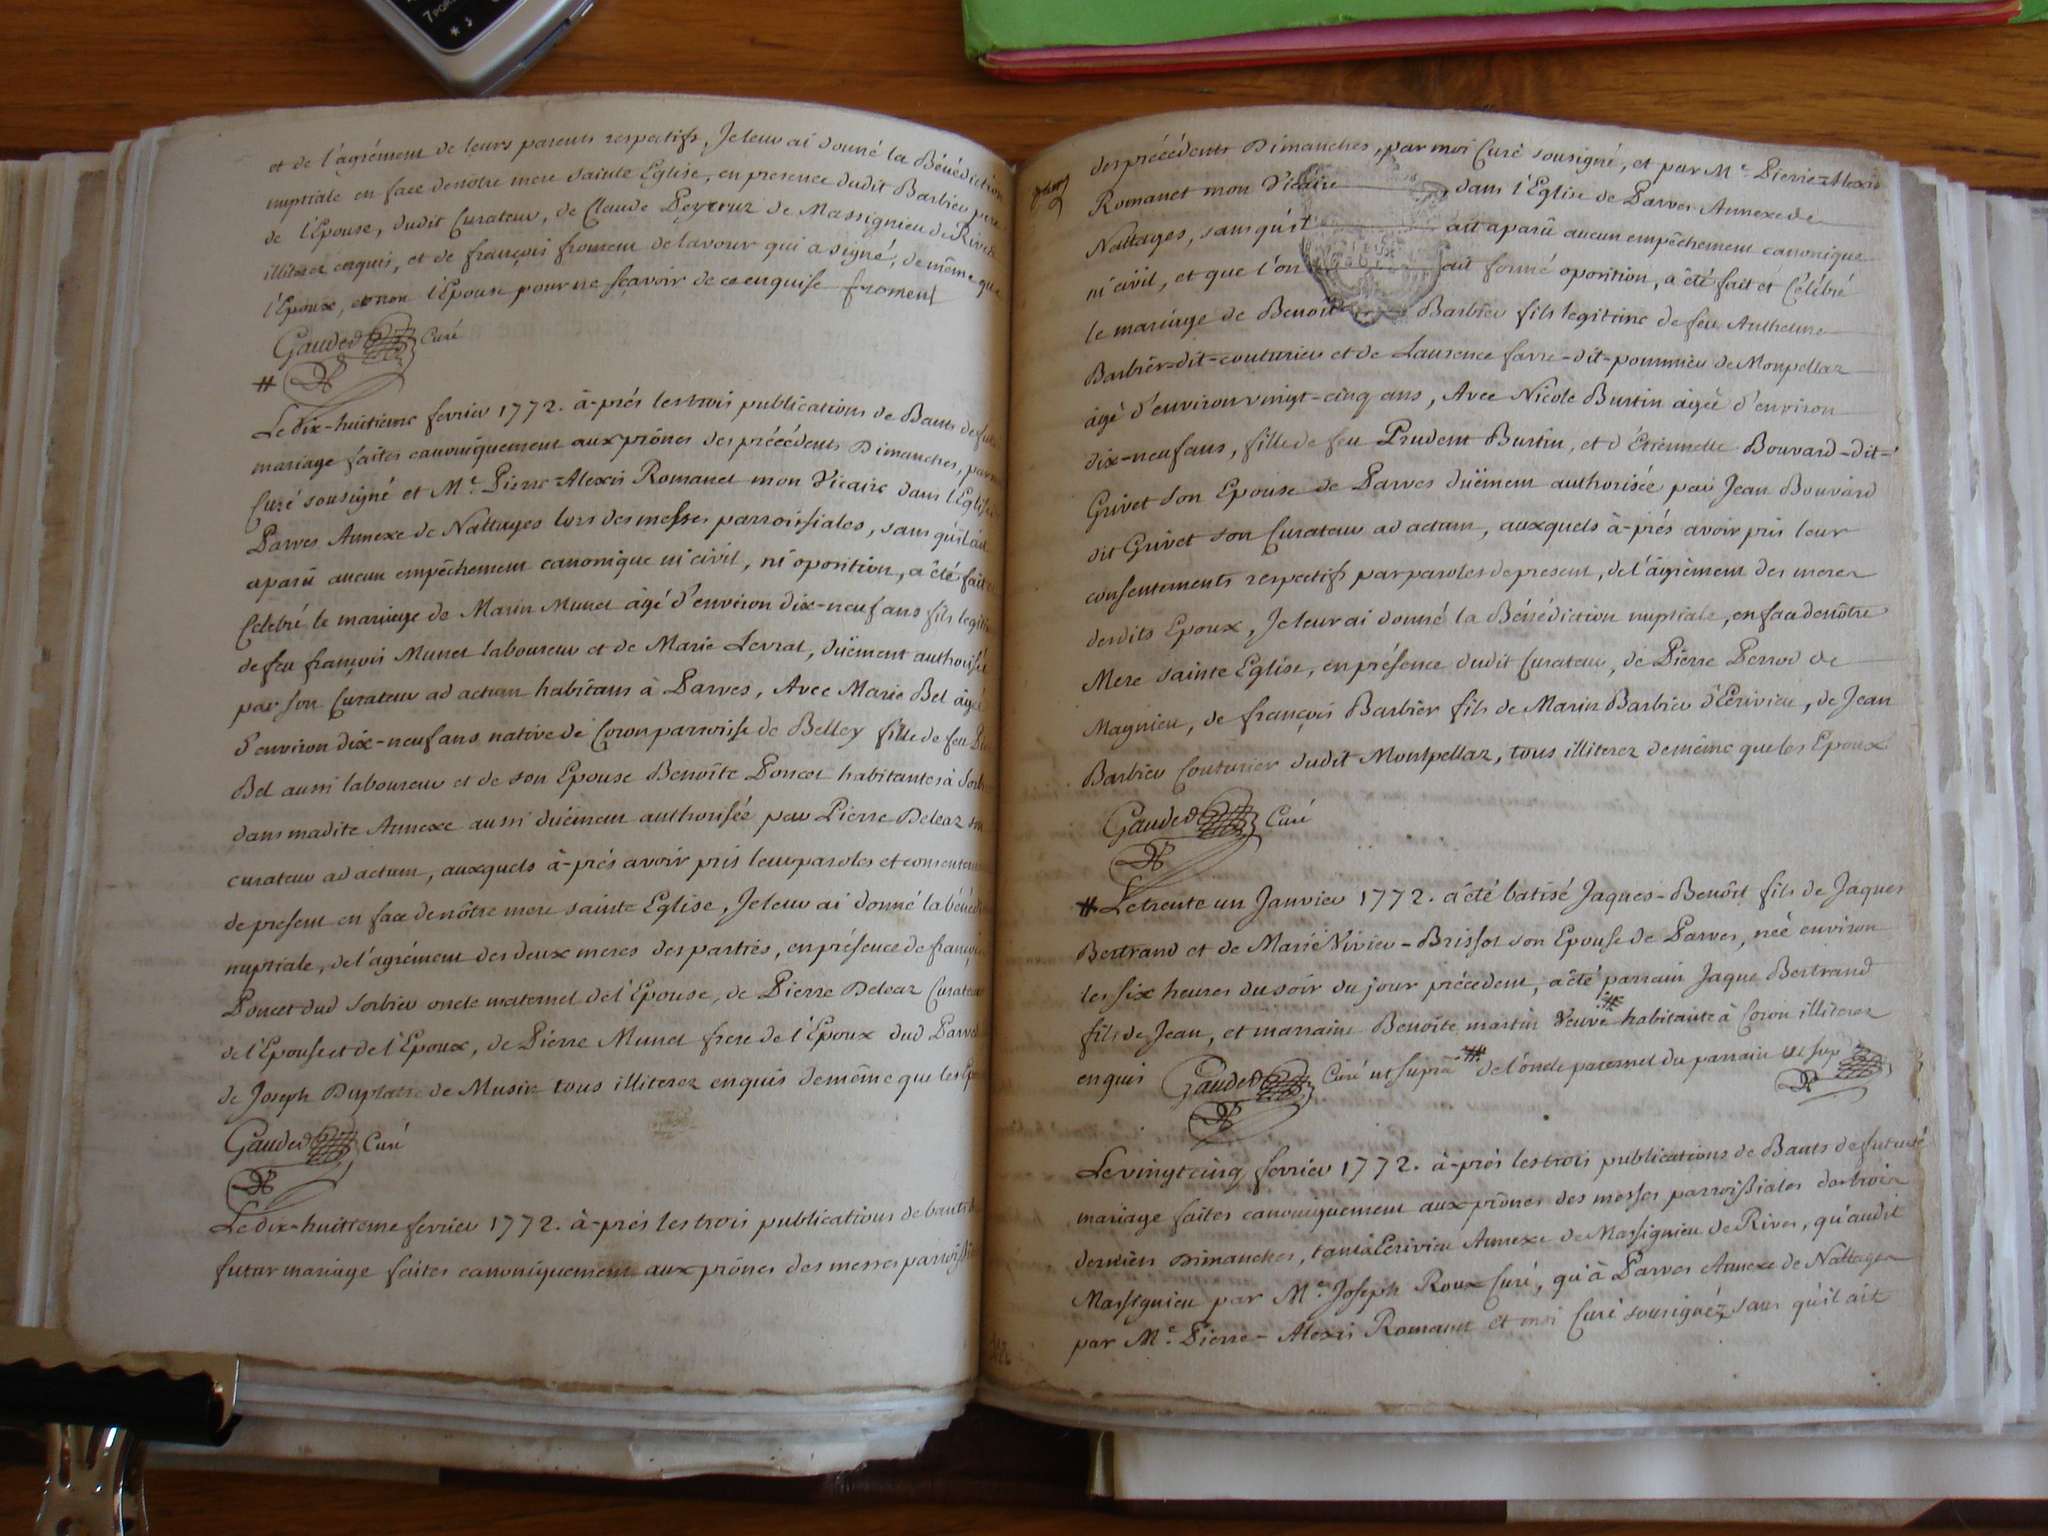 et de l'agrément de leurs parents respectifs, Je leur ai donné la Bénédiction
nuptiale en face de nôtre mere Sainte Eglise, en presence dudit Barbier pere
de l'Epouse, dudit Curateur, de Claude Peyzeur de Massignieu de Rives
illiterez enquis, et de françois froment de lavour qui a signé, de même que
l'Epoux, et non l'Epouse pour ne sçavoir de ce enquise froment
Gauded Curé
#
Le dix-huitieme fevrier 1772. à-prés les trois publications de Bants de futur
mariage faites canoniquement aux prônes des préécédents Dimanches, par
Curé sousigné et Mre. Pierre-Alexis Romanet mon Vicaire dans l'Eglise
Parves Annexe de Nattages lors des messes parroissiales, sans qu'il ait
aparû aucun empêchement canonique ni civil, ni oposition, a été fait
Célébré le mariage de Marin Munet âgé d'environ dix-neuf ans fils legiti
de feu françois Munet laboureur et de Marie Levrat, düement authorisé
par son Curateur ad actum habitans à Parves, Avec Marie Bel âgée
d'environ dix-neuf ans native de Coron parroisse de Belley fille de feu
Bel aussi laboureur et de son Epouse Benoîte Poncet habitantes à Sorb
dans madite Annexe aussi düement authorisée par Pierre Delcaz son
curateur ad actum, auxquels à-prés avoir pris leur paroles et consentem
de present en face de nôtre mere sainte Eglise, Je leur ai donné la bénéd
nuptiale, de l'agrément des deux meres des parties, en présence de françois
Poncet dud Sorbier oncle maternel de l'Epouse, de Pierre Delcaz Curateur
de l'Epouse et de l'Epoux, de Pierre Munet frere de l'Epoux dud Parves
de Joseph Duplatre de Musin tous illiterez enquis de même que les Ep
Gauded Curé
Le dix-huitieme fevrier 1772. à-prés les trois publications de bants d
futur mariage faites canoniquement aux prônes des messes parroissi
des préécédents Dimanches, par moi Curé sousigné, et par Mre. Pierre-Alexis
Romanet mon Vicaire dans l'Eglise de Parves Annexe de
Nattages, sans qu'il ait aparû aucun empêchement canonique
ni civil, et que l'on ait formé oposition, a été fait et Célébré
le mariage de Benoit Barbier fils legitime de feu Anthelme
Barbier-dit-couturier et de Laurence favre-dit-pommier de Monpellaz
âgé d'environ vingt-cinq ans, Avec Nicole Burtin âgée d'environ
dix-neuf ans, fille de feu Prudent Burtin, et d'Etiennette Bouvard-dit-
Grivet son Epouse de Parves düement authorisée par Jean Bouvard
dit Grivet son Curateur ad actum, auxquels à-prés avoir pris leur
consentements respectifs par paroles de present, de l'âgrément des meres
desdits Epoux, Je leur ai donné la Bénédiction nuptiale, en face de nôtre
Mere sainte Eglise, en présence dudit Curateur, de Pierre Perrod de
Magnieu, de françois Barbier fils de Marin Barbier d'Ecrivieu, de Jean
Barbier Couturier dudit Montpellaz, tous illiterez de même que les Epoux
Gauded Curé
# Le trente un Janvier 1772. a été batisé Jaques-Benôit fils de Jaques
Bertrand et de Marie Vivier-Brissot son Epouse de Parves, néé environ
les six heures du soir du jour précédent, a été parrain Jaque Bertrand
fils de Jean, et marraine Benoîte martin Veuve # habitante à Coron illiterez
enquis Gauded Curé ut supra # de l'oncle paternel du parrain ut sup
Le vingt cinq fevrier 1772. à-prés les trois publications de Bants de future
mariage faites canoniquement aux prônes des messes parroissiales des trois
derniers Dimanches, tant à Ecrivieu Annexe de Massignieu de Rives, qu'audit
Massignieu par Mre. Joseph Roux Curé, qu'à Parves Annexe de Nattages
par Mre. Pierre-Alexis Romanet et moi Curé sousignéz, sans qu'il ait